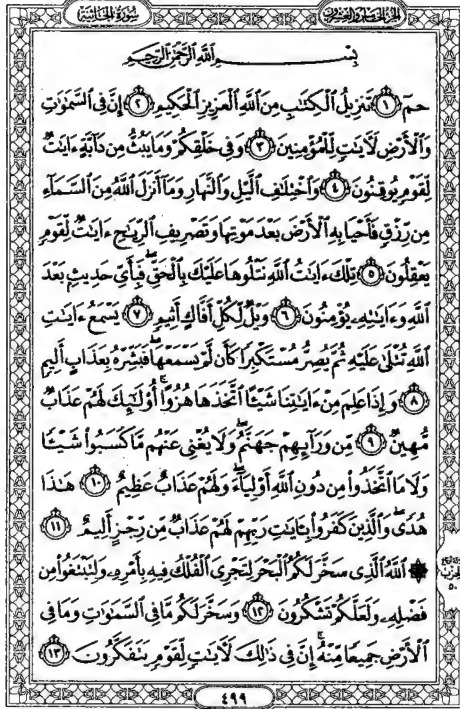 سُورَةُ الجَاثِيَةِ
الجُزْءُ الخَامِسُ وَالعِشْرُونَ
بِسْمِ ٱللَّهِ ٱلرَّحْمَٰنِ ٱلرَّحِيمِ
حمٓ ١ تَنزِيلُ ٱلْكِتَٰبِ مِنَ ٱللَّهِ ٱلْعَزِيزِ ٱلْحَكِيمِ ٢ إِنَّ فِى ٱلسَّمَٰوَٰتِ
وَٱلْأَرْضِ لَءَايَٰتٍ لِّلْمُؤْمِنِينَ ٣ وَفِى خَلْقِكُمْ وَمَا يَبُثُّ مِن دَآبَّةٍ ءَايَٰتٌ
لِّقَوْمٍ يُوقِنُونَ ٤ وَٱخْتِلَٰفِ ٱلَّيْلِ وَٱلنَّهَارِ وَمَآ أَنزَلَ ٱللَّهُ مِنَ ٱلسَّمَآءِ
مِن رِّزْقٍ فَأَحْيَا بِهِ ٱلْأَرْضَ بَعْدَ مَوْتِهَا وَتَصْرِيفِ ٱلرِّيَٰحِ ءَايَٰتٌ لِّقَوْمٍ
يَعْقِلُونَ ٥ تِلْكَ ءَايَٰتُ ٱللَّهِ نَتْلُوهَا عَلَيْكَ بِٱلْحَقِّ ۖ فَبِأَىِّ حَدِيثٍۭ بَعْدَ
ٱللَّهِ وَءَايَٰتِهِۦ يُؤْمِنُونَ ٦ وَيْلٌ لِّكُلِّ أَفَّاكٍ أَثِيمٍ ٧ يَسْمَعُ ءَايَٰتِ
ٱللَّهِ تُتْلَىٰ عَلَيْهِ ثُمَّ يُصِرُّ مُسْتَكْبِرًا كَأَن لَّمْ يَسْمَعْهَا ۖ فَبَشِّرْهُ بِعَذَابٍ أَلِيمٍ
٨ وَإِذَا عَلِمَ مِنْ ءَايَٰتِنَا شَيْـًٔا ٱتَّخَذَهَا هُزُوًا ۚ أُو۟لَٰٓئِكَ لَهُمْ عَذَابٌ
مُّهِينٌ ٩ مِّن وَرَآئِهِمْ جَهَنَّمُ ۖ وَلَا يُغْنِى عَنْهُم مَّا كَسَبُوا۟ شَيْـًٔا
وَلَا مَا ٱتَّخَذُوا۟ مِن دُونِ ٱللَّهِ أَوْلِيَآءَ ۖ وَلَهُمْ عَذَابٌ عَظِيمٌ ١٠ هَٰذَا
هُدًى ۖ وَٱلَّذِينَ كَفَرُوا۟ بِـَٔايَٰتِ رَبِّهِمْ لَهُمْ عَذَابٌ مِّن رِّجْزٍ أَلِيمٌ ١١
۞ ٱللَّهُ ٱلَّذِى سَخَّرَ لَكُمُ ٱلْبَحْرَ لِتَجْرِىَ ٱلْفُلْكُ فِيهِ بِأَمْرِهِۦ وَلِتَبْتَغُوا۟ مِن
فَضْلِهِۦ وَلَعَلَّكُمْ تَشْكُرُونَ ١٢ وَسَخَّرَ لَكُم مَّا فِى ٱلسَّمَٰوَٰتِ وَمَا فِى
ٱلْأَرْضِ جَمِيعًا مِّنْهُ ۚ إِنَّ فِى ذَٰلِكَ لَءَايَٰتٍ لِّقَوْمٍ يَتَفَكَّرُونَ ١٣
٥٠
٤٩٩